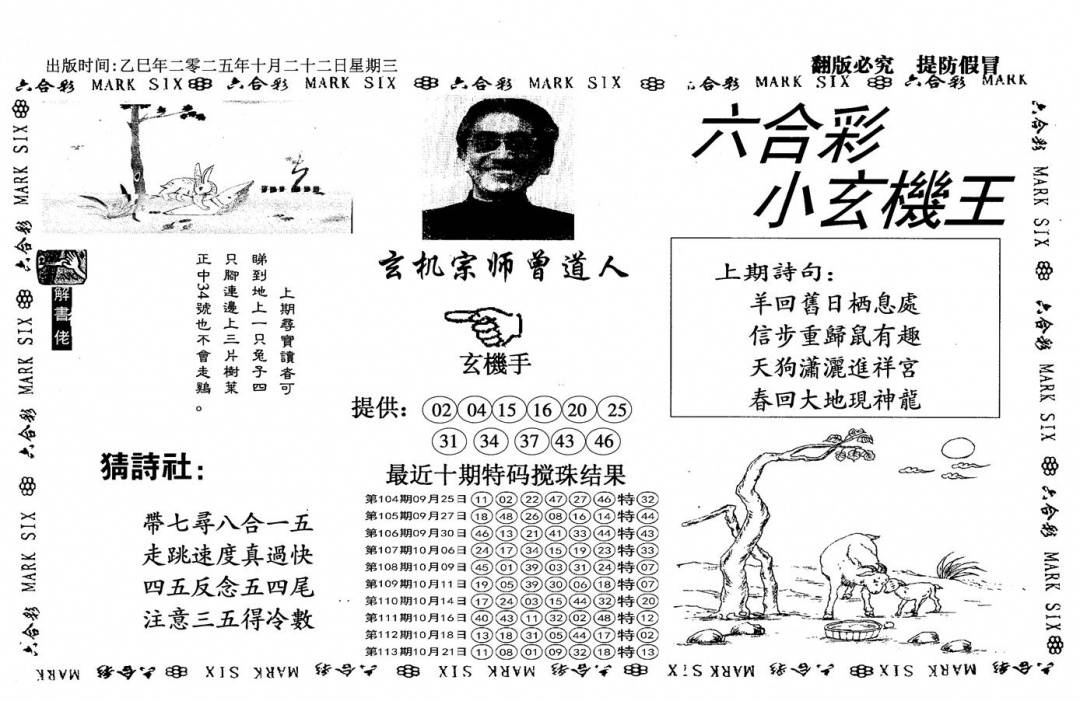 出版时间:乙巳年二零二五年十月二十二日星期三
翻版必究 提防假冒
六合彩 MARK SIX 六合彩 MARK SIX 六合彩 MARK SIX 六合彩 MARK SIX 六合彩 MARK
六合彩
小玄機王
解書佬
上期尋寶讀者可
睇到地上一只兔子四
只腳連邊上三片樹葉
正中34號也不會走鷄。
玄机宗师曾道人
玄機手
提供: 02 04 15 16 20 25
31 34 37 43 46
上期詩句:
羊回舊日栖息處
信步重歸鼠有趣
天狗瀟灑進祥宮
春回大地現神龍
猜詩社:
帶七尋八合一五
走跳速度真過快
四五反念五四尾
注意三五得冷數
最近十期特码搅珠结果
第104期09月25日 11 02 22 47 27 46 特 32
第105期09月27日 18 48 26 08 16 14 特 44
第106期09月30日 46 13 21 41 33 44 特 43
第107期10月06日 24 17 34 15 19 23 特 33
第108期10月09日 45 01 39 03 31 24 特 07
第109期10月11日 19 05 39 30 06 18 特 07
第110期10月14日 17 24 03 15 44 32 特 20
第111期10月16日 40 43 11 32 02 48 特 12
第112期10月18日 13 18 31 05 44 17 特 02
第113期10月21日 11 08 01 09 32 18 特 13
六合彩 MARK SIX 六合彩 MARK SIX 六合彩 MARK SIX 六合彩
六合彩 MARK SIX 六合彩 MARK SIX 六合彩 MARK SIX
MARK 六合彩 SIX MARK 六合彩 SIX MARK 六合彩 SIX MARK 六合彩 SIX MARK 六合彩